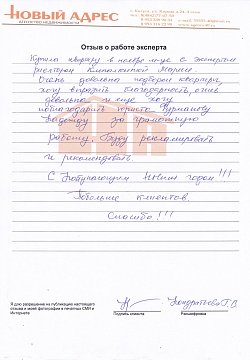 НОВЫЙ АДРЕС
АГЕНТСТВО НЕДВИЖИМОСТИ
Отзыв о работе эксперта
Купила квартиру в ноябре м-це с экспертом
риелтором Марией
Очень довольна подбором квартиры,
хочу выразить благодарность, очень
довольна и еще хочу
поблагодарить юриста Бурнашову
Надежду за грамотную
работу. Буду рекламировать
и рекомендовать.
С Наступающим Новым годом!!!
Побольше клиентов.
Спасибо!!!
Я даю разрешение на публикацию настоящего
отзыва и моей фотографии в печатных СМИ и
Интернете
Подпись клиента
Расшифровка
Кондратьева Г.В.